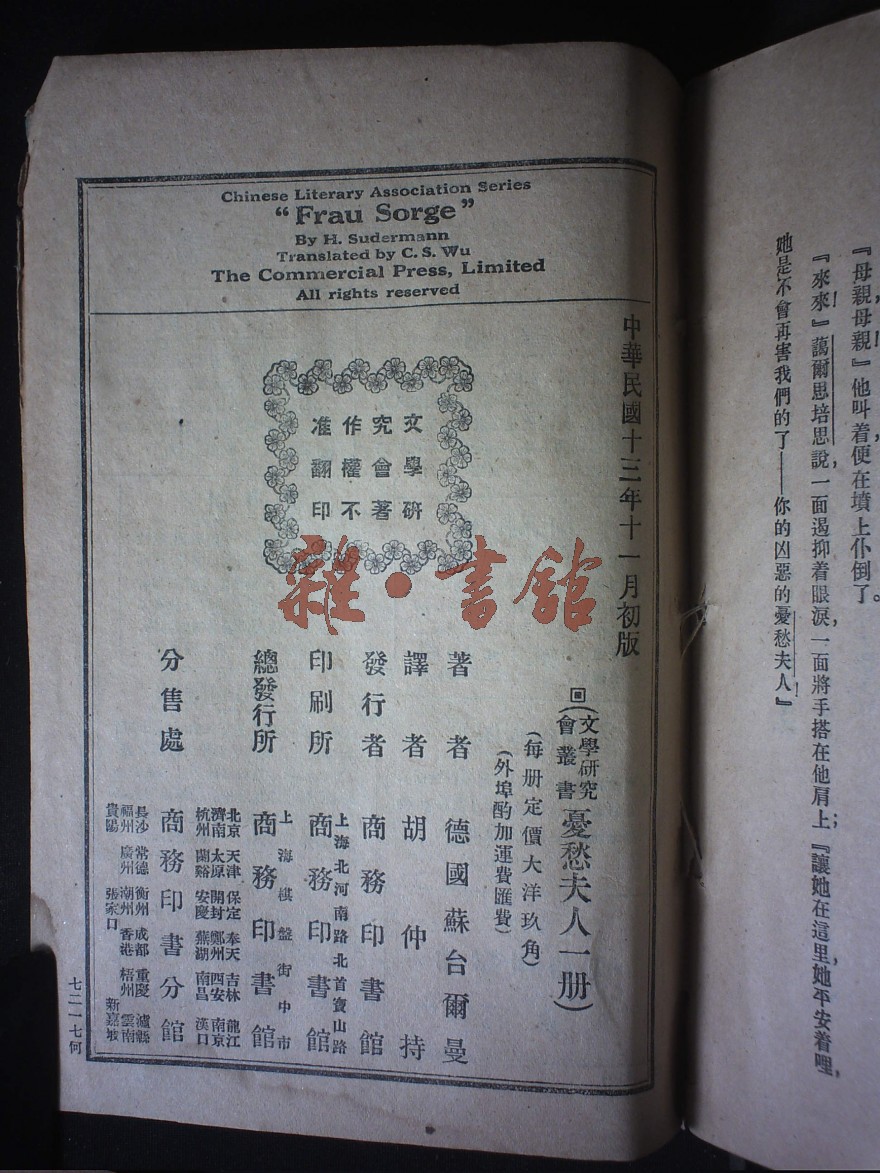 『母親母親』他叫着便在墳上仆倒了。
『來來』藹爾思培思說,一面遏抑着眼淚,一面將手搭在他肩上;『讓她在這里,她平安着哩,
她是不會再害我們的了——你的凶惡的憂愁夫人!』
Chinese Literary Association Series
“Frau Sorge”
By H. Sudermann
Translated by C. S. Wu
The Commercial Press, Limited
All rights reserved
中華民國十三年十一月初版
文學研
究會著
作權不
准翻印
回(文學研究會叢書憂愁夫人一册)
(每册定價大洋玖角)
(外埠酌加運費匯費)
著者 德國蘇台爾曼
譯者 胡仲持
發行者 商務印書館
印刷所 上海北河南路北首寶山路 商務印書館
總發行所 上海棋盤街中市 商務印書館
北京 天津 保定 奉天 吉林 龍江
濟南 太原 開封 鄭州 西安 南京
杭州 蘭谿 安慶 蕪湖 南昌 漢口
分售處 商務印書分館
長沙 常德 衡州 成都 重慶 瀘縣
福州 廣州 潮州 香港 梧州 雲南
貴陽 張家口 新嘉坡
七二一七何
雜·書館